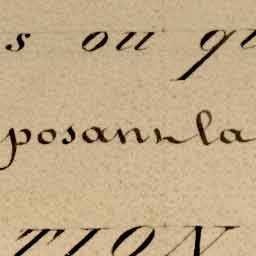 s ou qu
posant la
TION